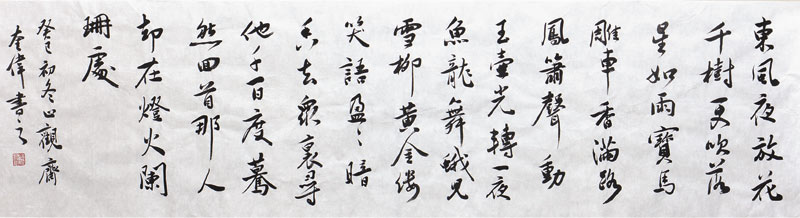 東風夜放花
千樹更吹落
星如雨寶馬
雕車香滿路
鳳簫聲動
玉壺光轉一夜
魚龍舞蛾兒
雪柳黃金縷
笑語盈〻暗
香去衆裏尋
他千百度驀
然回首那人
却在燈火闌
珊處
癸巳初冬止觀齋
奎偉書之